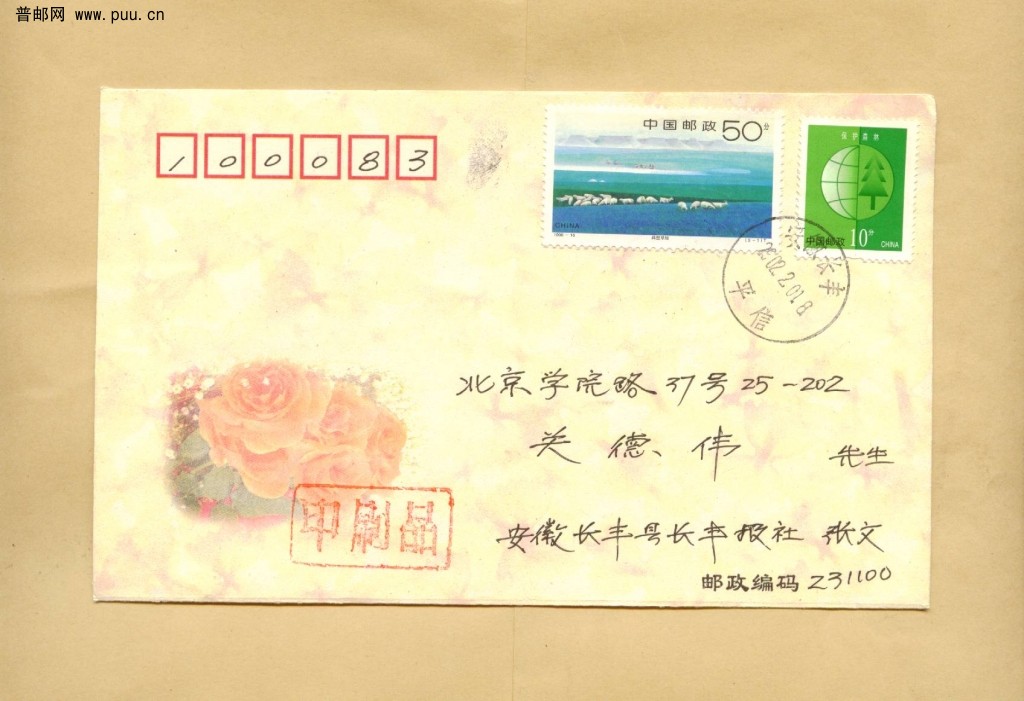 普邮网 www.puu.cn
100083
中国邮政 50分
CHINA
保护森林
中国邮政 10分 CHINA
长丰
2002.2.01.8
平信
北京学院路37号25-202
关德伟 先生
印刷品
安徽长丰县长丰报社 张文
邮政编码 231100